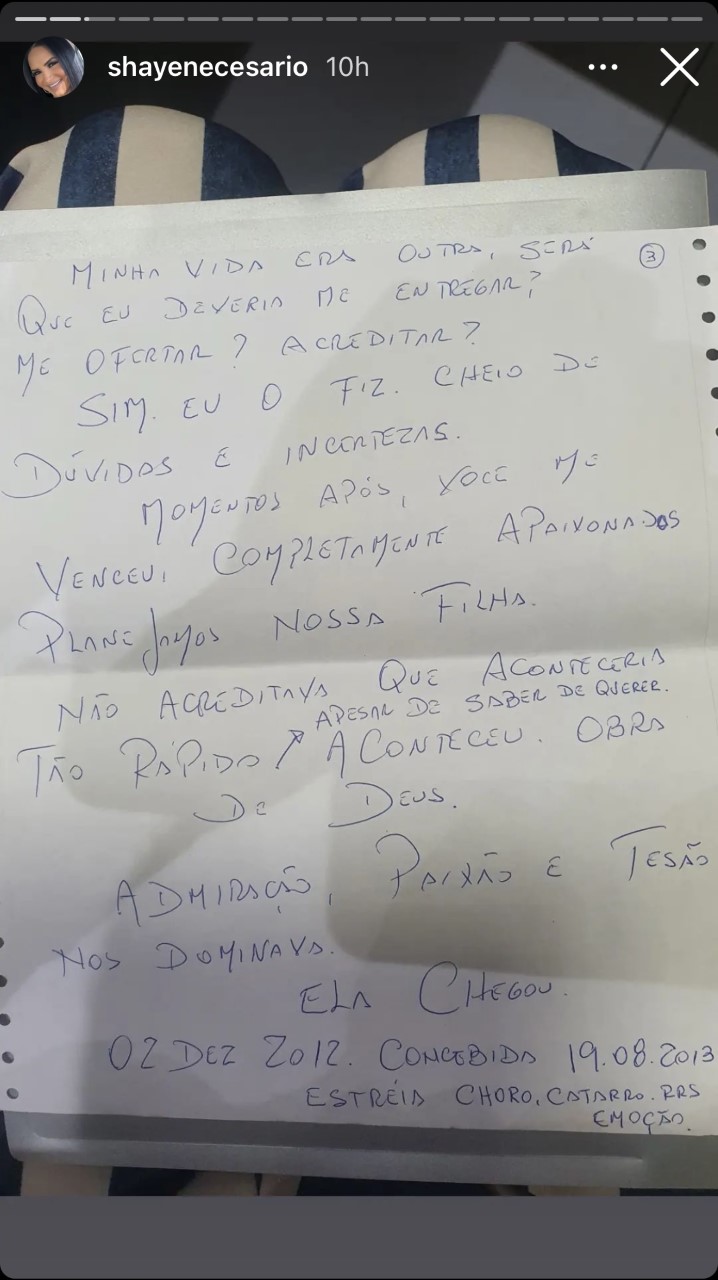 shayenecesario 10h
MINHA VIDA ERA OUTRA, SERÁ 3
QUE EU DEVERIA ME ENTREGAR?
ME OFERTAR? ACREDITAR?
SIM. EU O FIZ. CHEIO DE
DÚVIDAS E INCERTEZAS.
MOMENTOS APÓS, VOCE ME
VENCEU, COMPLETAMENTE APAIXONADOS
PLANEJAMOS NOSSA FILHA.
NÃO ACREDITAVA QUE ACONTECERIA
APESAR DE SABER DE QUERER.
TÃO RÁPIDO ACONTECEU. OBRA
DE DEUS.
ADMIRAÇÃO, PAIXÃO E TESÃO
NOS DOMINAVA.
ELA CHEGOU.
02 DEZ 2012. CONCEBIDA 19.08.2013
ESTRÉIA CHORO, CATARRO. RRS
EMOÇÃO.